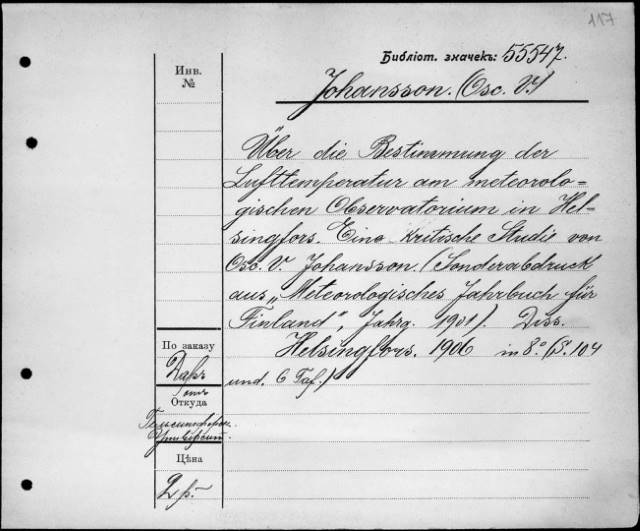 117
Библіот. значекъ: 55547.
Инв.
№
Johansson. (Osc. V.)
Über die Bestimmung der
Lufttemperatur am meteorolo=
gischen Observatorium in Hel-
singfors. Eine kritische Studie von
Osc. V. Johansson. (Sonderabdruck
aus „Meteorologisches Jahrbuch für
Finland", Jahrg. 1901). Diss.
Helsingfors. 1906 in 8° (S. 104
und. 6 Taf.)
По заказу
Даръ
отъ
Откуда
Гельсингфорс.
Университ.
Цѣна
2 р. –